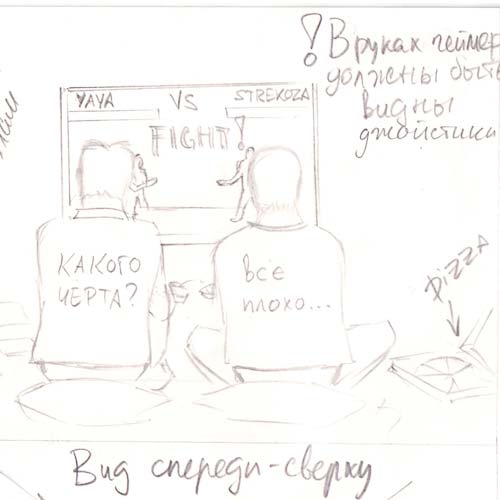 ! В руках геймер
должны быть
видны
джойстики
YAYA VS STREKOZA
FIGHT!
КАКОГО
ЧЁРТА?
ВСЁ
ПЛОХО...
PIZZA
Вид спереди-сверху